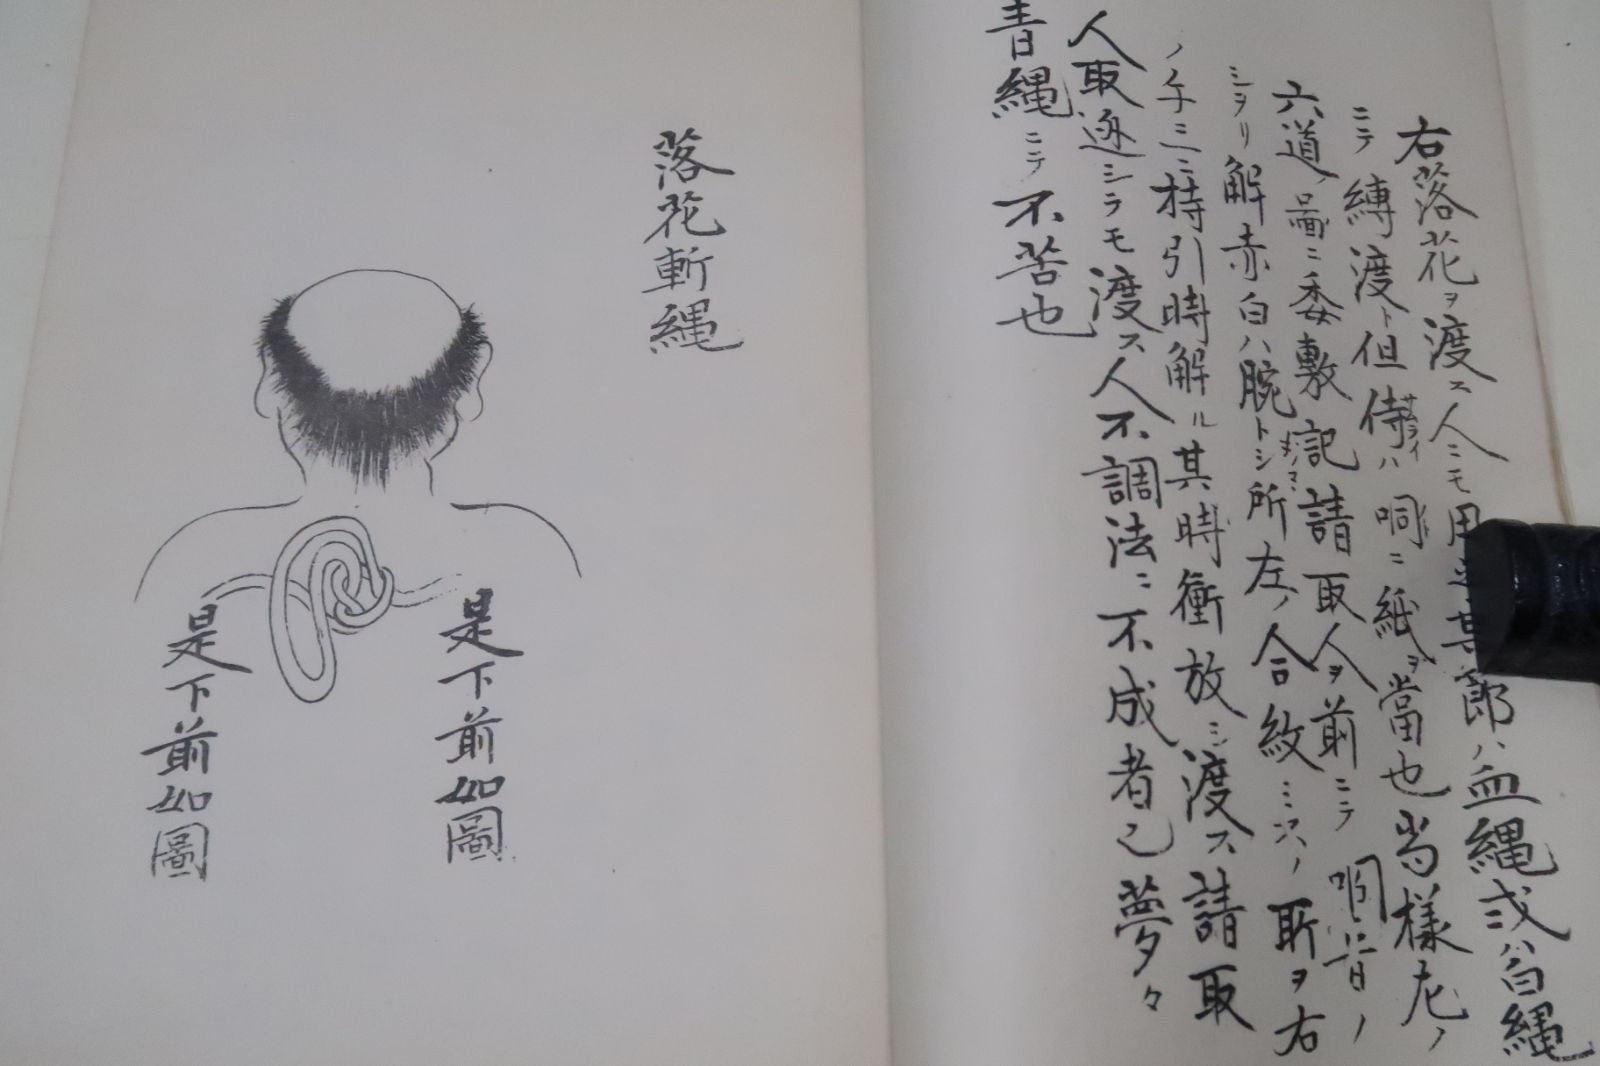 右落花ヲ渡ス人ニモ用其節ハ血縄或ハ白縄
ニテ縛渡ト但侍サムライハ咽ニ紙ヲ當也当様左ノ
六道ノ圖ニ委敷記請取人ヲ前ニテ
シヲリ解赤白ハ腕トシ所左ノ合紋ミ取ヲ右
ノ手ニ持引時解ル其時衝放シ渡ス請取
人取逃シラモ渡ス人不調法ニ不成者也夢々
青縄ニテ不苦也
落花斬縄
是下前如圖
是下前如圖